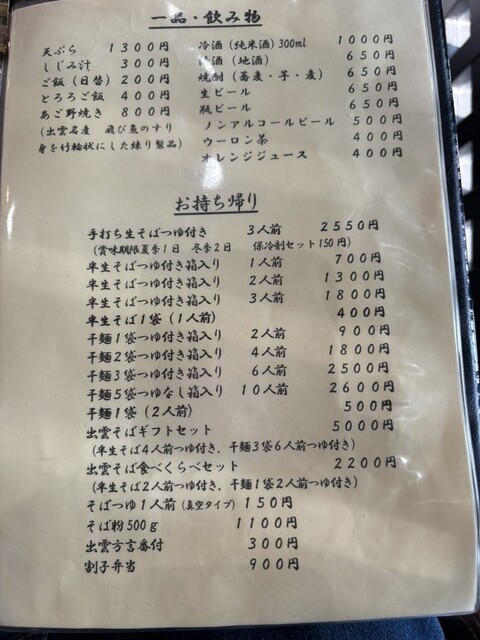 一品・飲み物
天ぷら 1300円
しじみ汁 300円
ご飯(日替) 200円
とろろご飯 400円
あご野焼き 800円
(出雲名産 飛び魚のすり
身を竹輪状にした練り製品)
冷酒(純米酒)300ml 1000円
酒(地酒) 650円
焼酎(蕎麦・芋・麦) 650円
生ビール 650円
瓶ビール 650円
ノンアルコールビール 500円
ウーロン茶 400円
オレンジジュース 400円
お持ち帰り
手打ち生そばつゆ付き 3人前 2550円
(賞味期限夏季1日 冬季2日 保冷剤セット150円)
半生そばつゆ付き箱入り 1人前 700円
半生そばつゆ付き箱入り 2人前 1300円
半生そばつゆ付き箱入り 3人前 1800円
半生そば1袋(1人前) 400円
干麺1袋つゆ付き箱入り 2人前 900円
干麺2袋つゆ付き箱入り 4人前 1800円
干麺3袋つゆ付き箱入り 6人前 2500円
干麺5袋つゆなし箱入り 10人前 2600円
干麺1袋(2人前) 500円
出雲そばギフトセット 5000円
(半生そば4人前つゆ付き、干麺3袋6人前つゆ付き)
出雲そば食べくらべセット 2200円
(半生そば2人前つゆ付き、干麺1袋2人前つゆ付き)
そばつゆ1人前(真空タイプ) 150円
そば粉500g 1100円
出雲方言番付 300円
割子弁当 900円